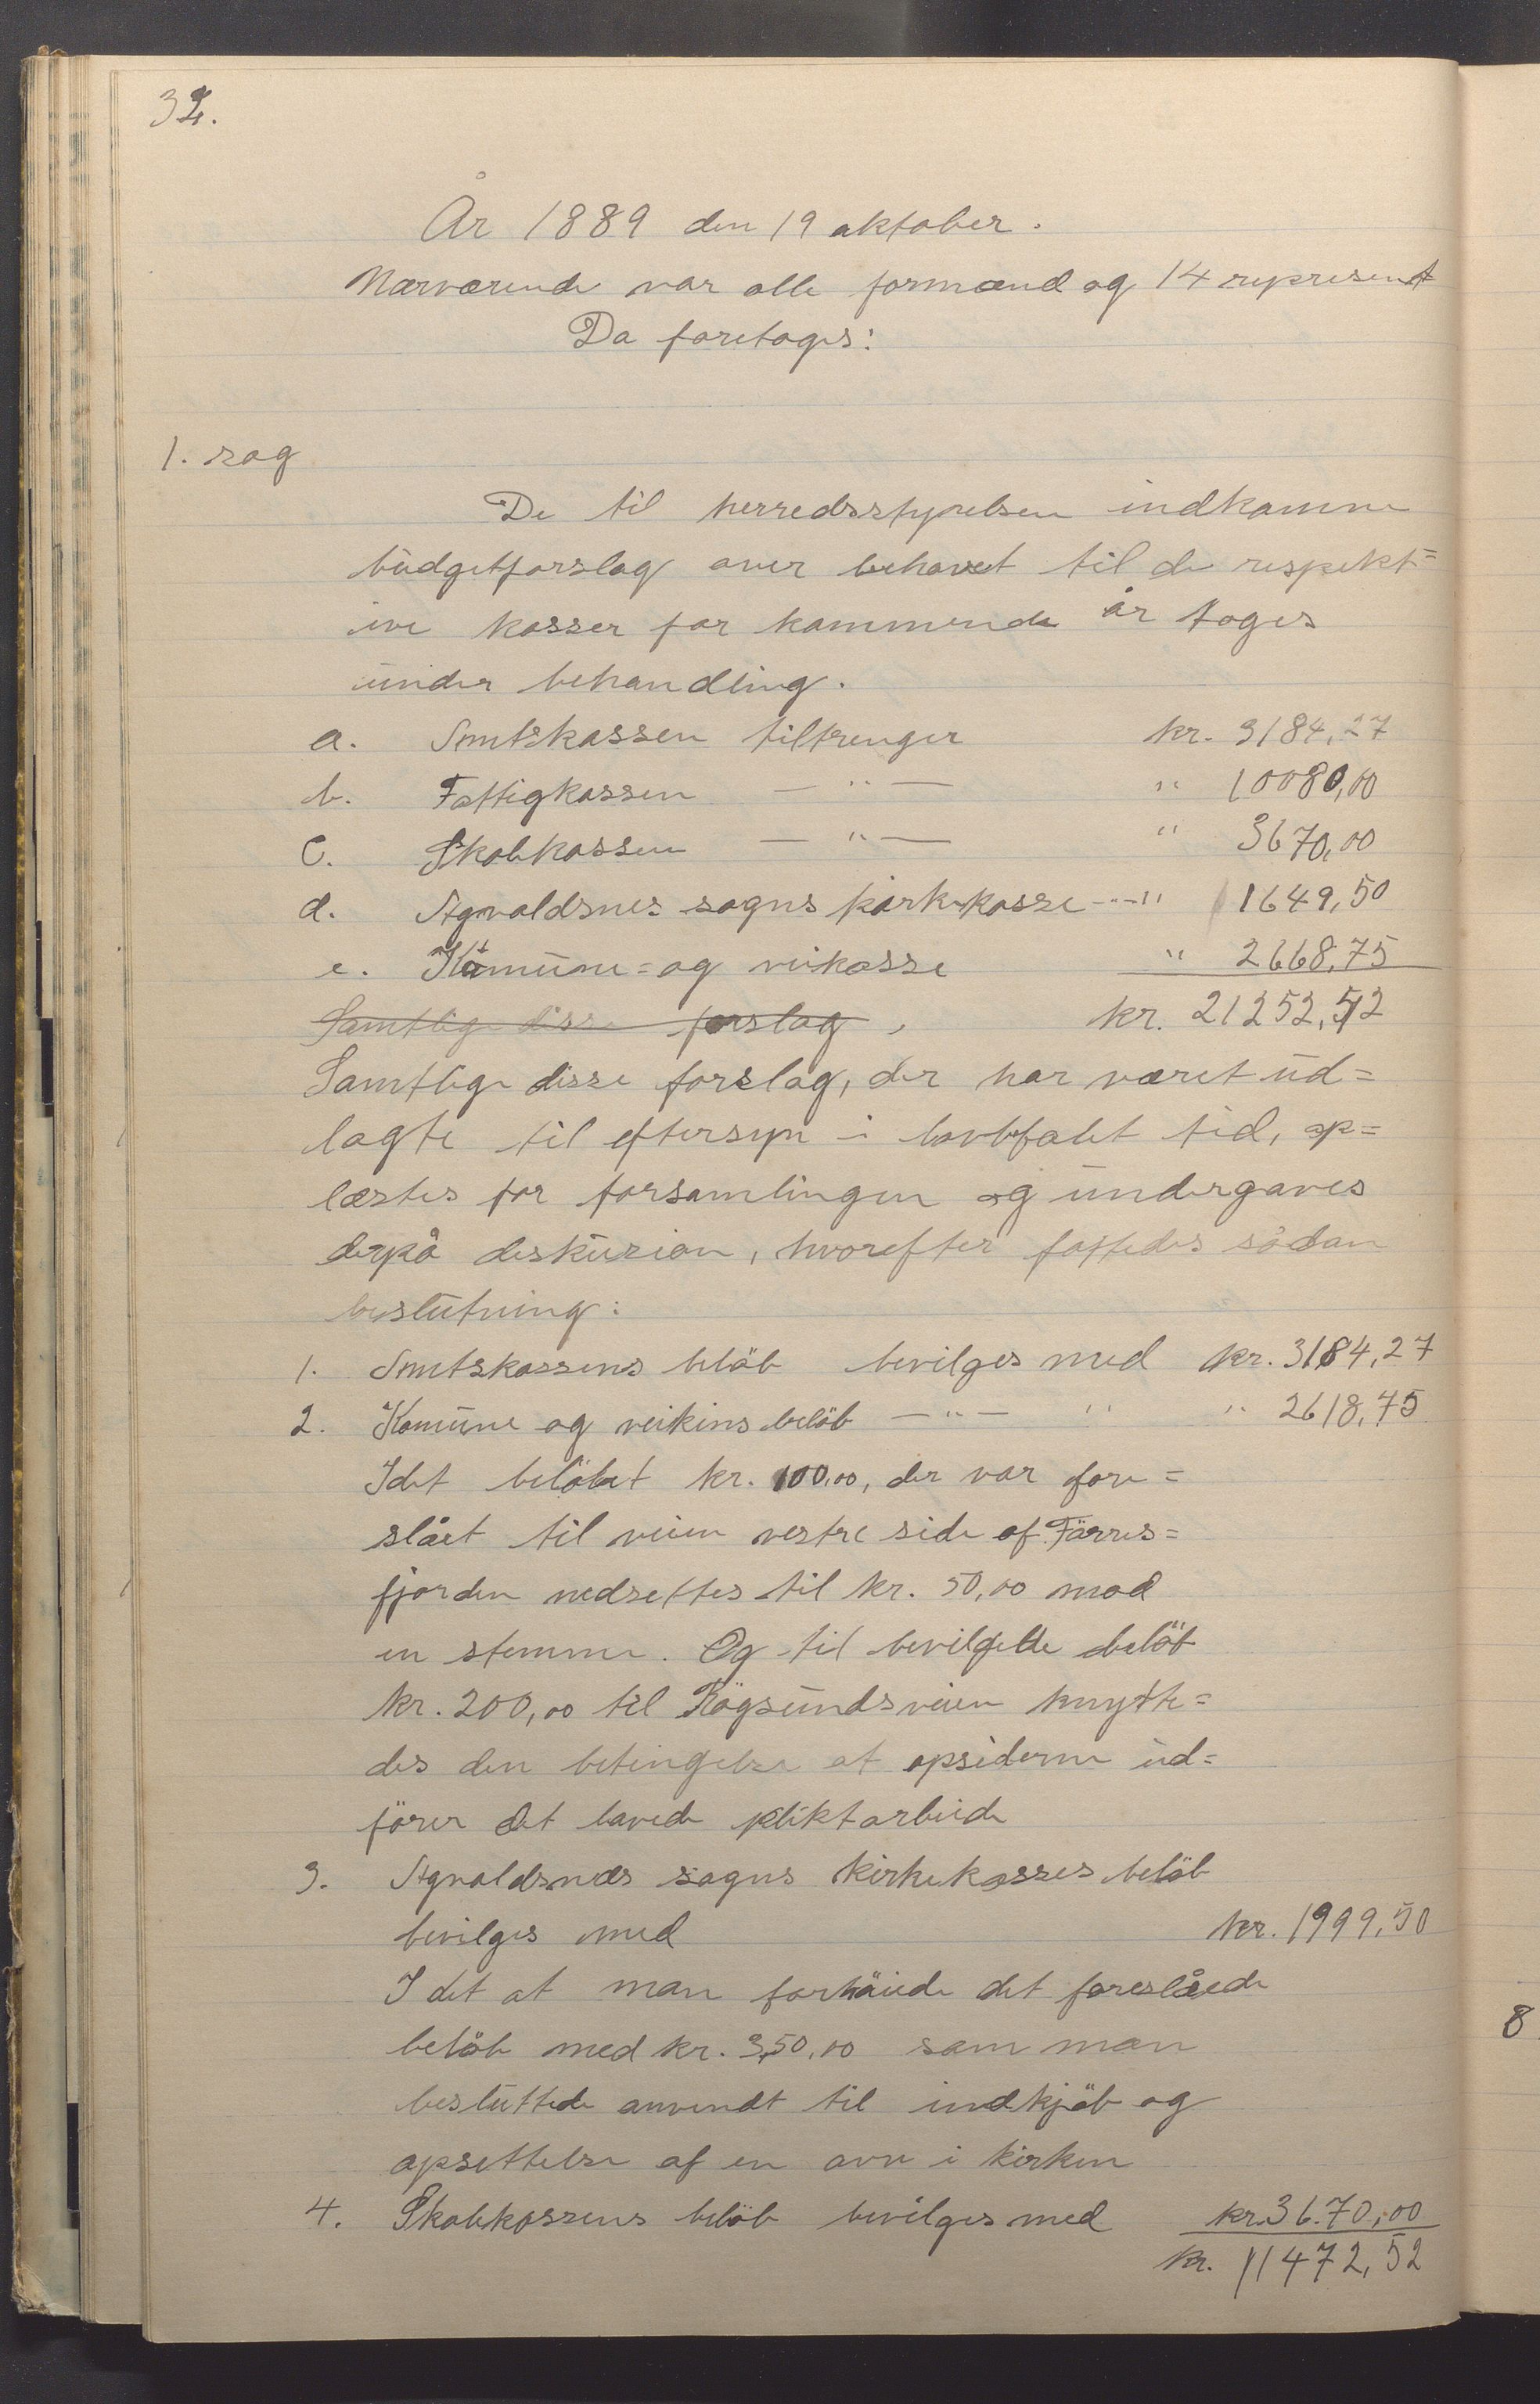 32.
År 1889 den 19 oktober.
Nærværende var alle formænd og 14 represent
Da foretoges:
1. sag
De til herredsstyrelsen indkomne
budgetforslag over behovet til de respekt=
ive kasser for kommende år toges
under behandling.
a. Amtskassen tiltrenger kr. 3184,27
b. Fattigkassen — " — " 10080,00
c. Skolekassen — " — " 3670,00
d. Agvaldsnes sogns kirkekasse -"- " 1649,50
e. Komune= og veikasse " 2668,75
Samtlige disse forslag, kr. 21252,52
Samtlige disse forslag, der har været ud=
lagte til eftersyn i lovbefalet tid, op=
læstes for forsamlingen og undergaves
derpå diskusion, hvorefter fattedes sådan
beslutning:
1. Amtskassens beløb bevilges med kr. 3184,27
2. Komune og veikins beløb — " — " " 2618,75
Idet beløbet kr. 100,00, der var fore=
slået til veien vestre side af Førres=
fjorden nedsettes til kr. 50,00 mod
en stemme. Og til bevilgede beløb
kr. 200,00 til Røgsundsveien knytte=
des den betingelse at opsiderne ud=
fører det lavede pliktarbeide
3. Agvaldsnes sogns kirkekasses beløb
bevilges med kr. 1999,50
I det at man forhøiede det foreslåede
beløb med kr. 350,00 som man
besluttede anvendt til indkjøb og
opsettelse af en ovn i kirken
4. Skolekassens beløb bevilges med kr. 3670,00
kr. 11472,52
8